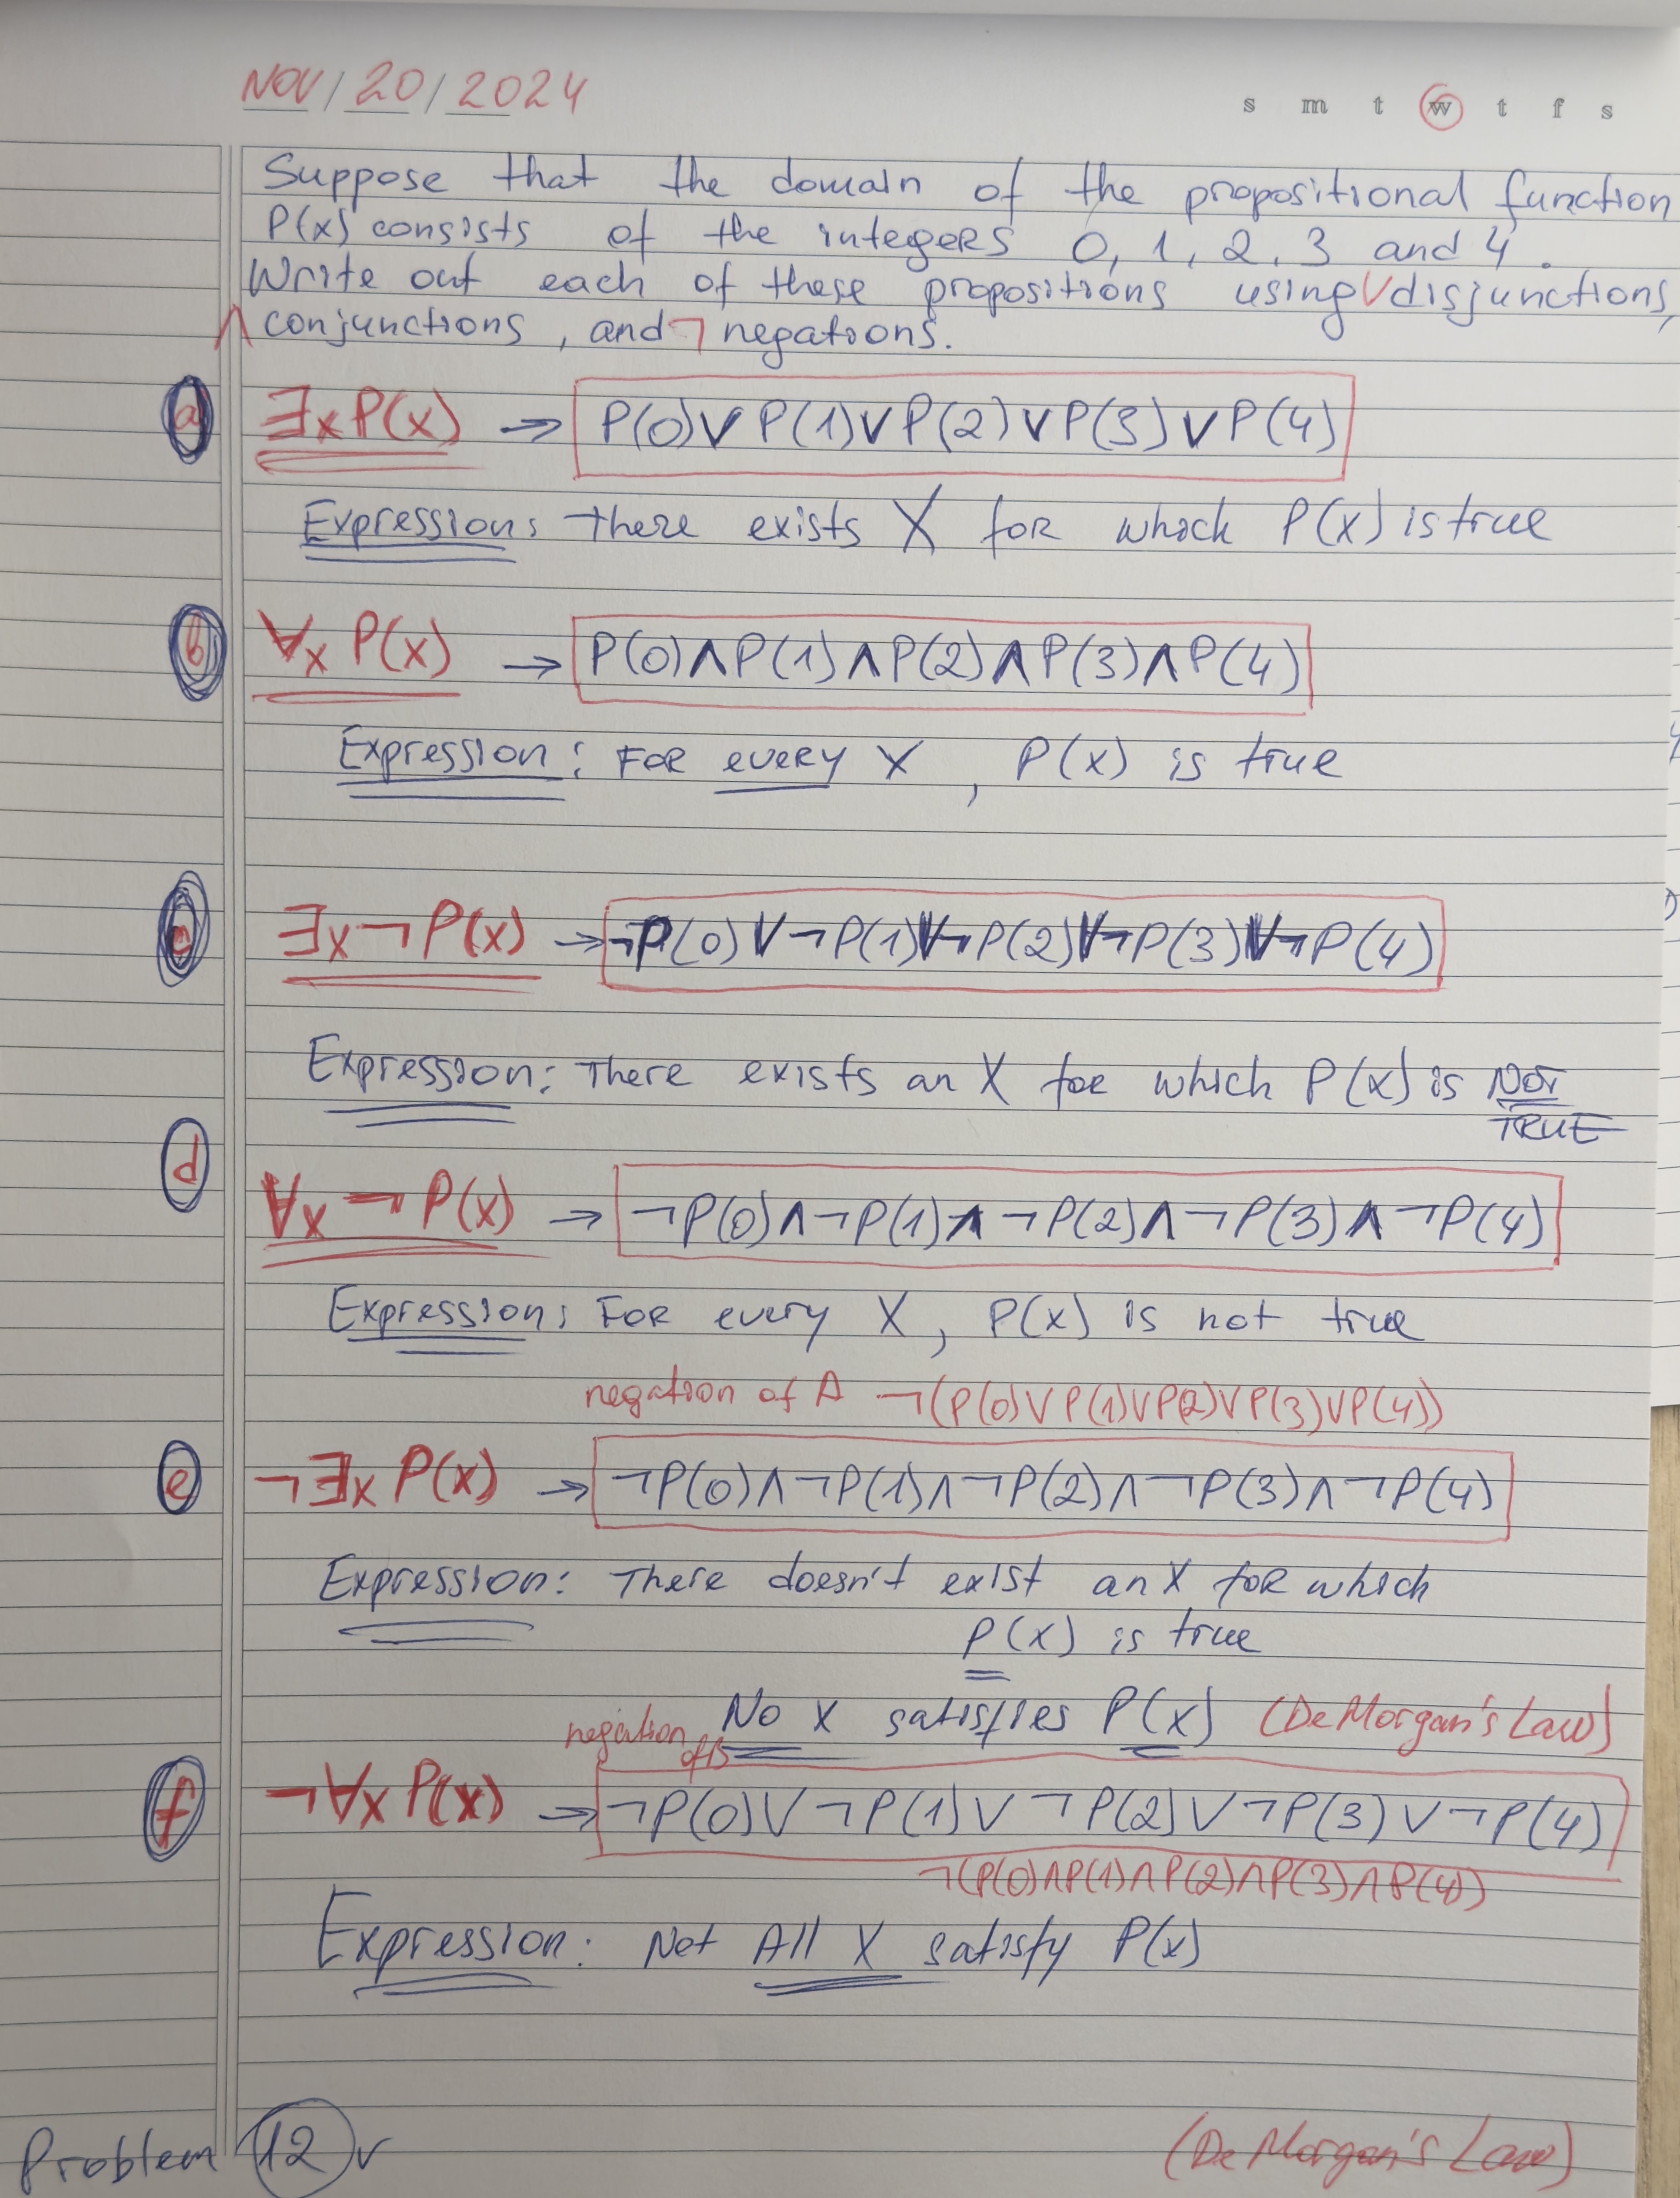 NOV / 20 / 2024
s m t w t f s
Suppose that the domain of the propositional function
P(x) consists of the integers 0, 1, 2, 3 and 4.
Write out each of these propositions using ∨ disjunctions,
∧ conjunctions, and ¬ negations.
a ∃x P(x) → P(0) ∨ P(1) ∨ P(2) ∨ P(3) ∨ P(4)
Expression: There exists X for which P(x) is true
b ∀x P(x) → P(0) ∧ P(1) ∧ P(2) ∧ P(3) ∧ P(4)
Expression: For every X, P(x) is true
c ∃x ¬ P(x) → ¬P(0) ∨ ¬P(1) ∨ ¬P(2) ∨ ¬P(3) ∨ ¬P(4)
Expression: There exists an X for which P(x) is NOT
TRUE
d
∀x ¬ P(x) → ¬P(0) ∧ ¬P(1) ∧ ¬P(2) ∧ ¬P(3) ∧ ¬P(4)
Expression: For every X, P(x) is not true
negation of A ¬(P(0) ∨ P(1) ∨ P(2) ∨ P(3) ∨ P(4))
e ¬∃x P(x) → ¬P(0) ∧ ¬P(1) ∧ ¬P(2) ∧ ¬P(3) ∧ ¬P(4)
Expression: There doesn't exist an X for which
P(x) is true
No X satisfies P(x) (De Morgan's Law)
negation
of B
f ¬∀x P(x) → ¬P(0) ∨ ¬P(1) ∨ ¬P(2) ∨ ¬P(3) ∨ ¬P(4)
¬(P(0) ∧ P(1) ∧ P(2) ∧ P(3) ∧ P(4))
Expression: Not All X satisfy P(x)
Problem 12 v (De Morgan's Law)